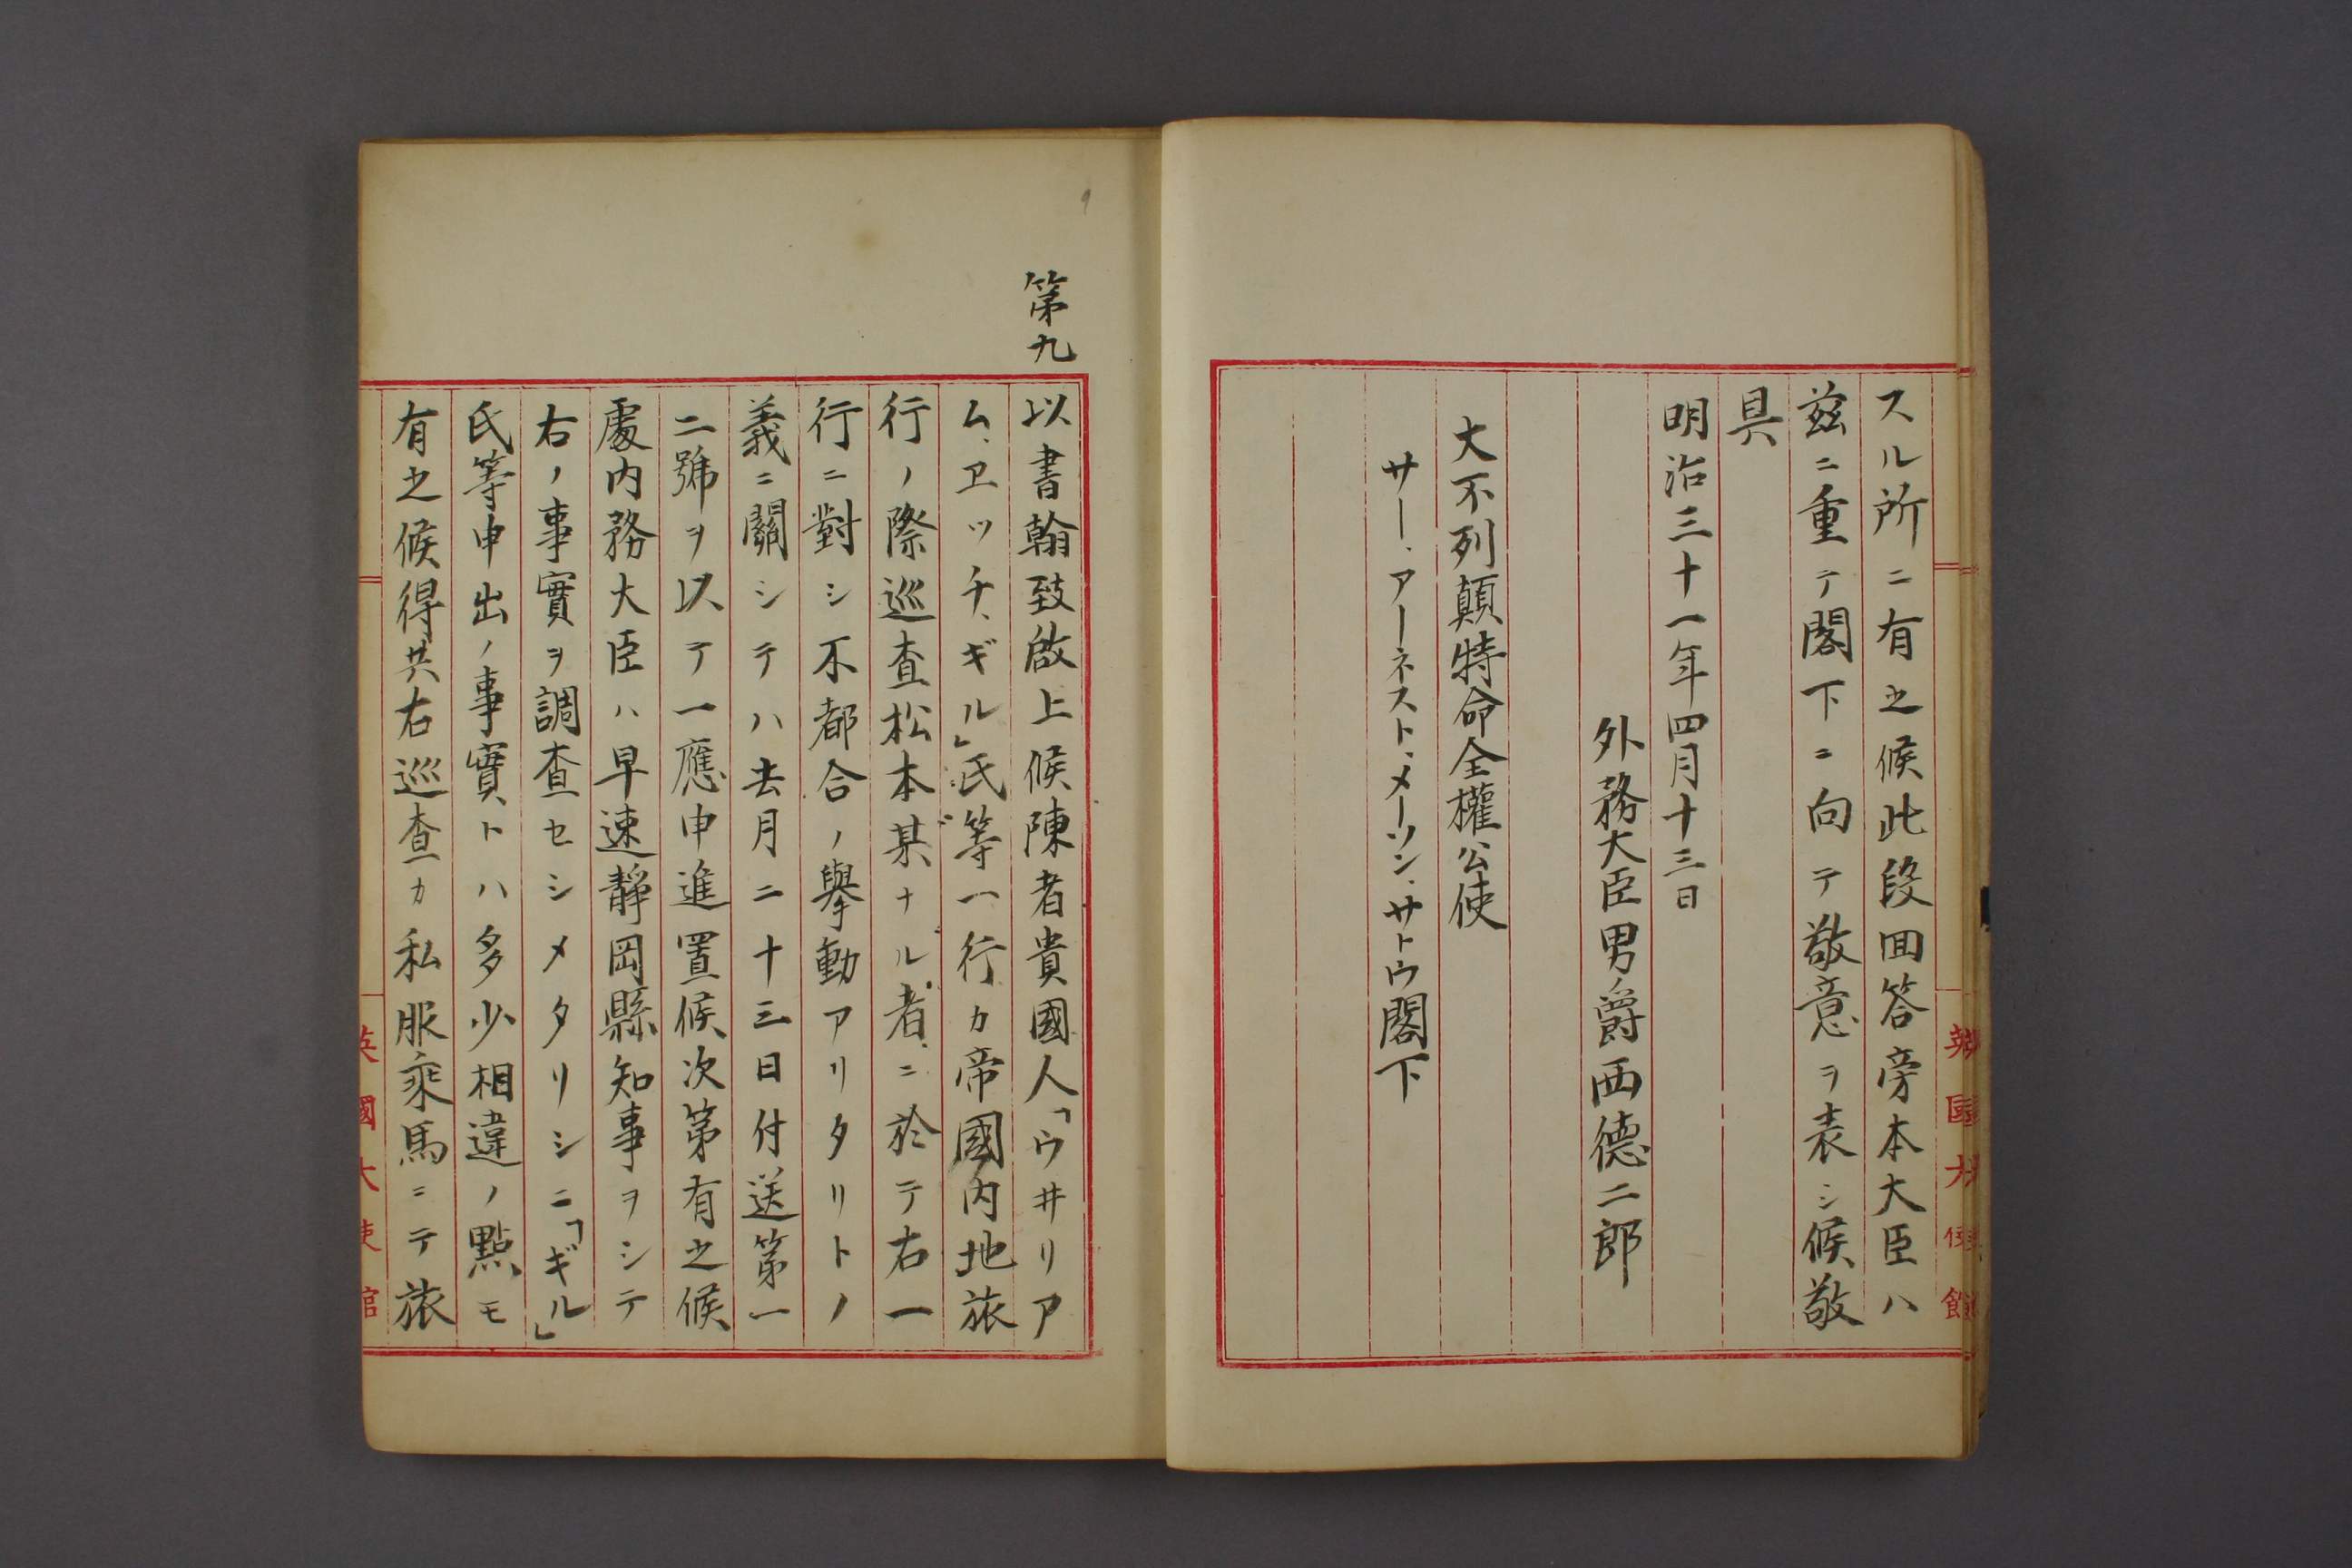 スル所ニ有之候此段回答旁本大臣ハ
茲ニ重テ閣下ニ向テ敬意ヲ表シ候敬
具
明治三十一年四月十三日
外務大臣男爵西德二郎
大不列顛特命全權公使
サー、アーネスト、メーソン、サトウ閣下
英國大使館
9
第九
以書翰致啟上候陳者貴國人「ウヰリア
ム、ヱッチ、ギル」氏等一行カ帝國內地旅
行ノ際巡查松本某ナル者ニ於テ右一
行ニ對シ不都合ノ擧動アリタリトノ
義ニ關シテハ去月二十三日付送第一
二號ヲ以テ一應申進置候次第有之候
處內務大臣ハ早速靜岡縣知事ヲシテ
右ノ事實ヲ調查セシメタリシニ「ギル」
氏等申出ノ事實トハ多少相違ノ點モ
有之候得共右巡查カ私服乘馬ニテ旅
英國大使館